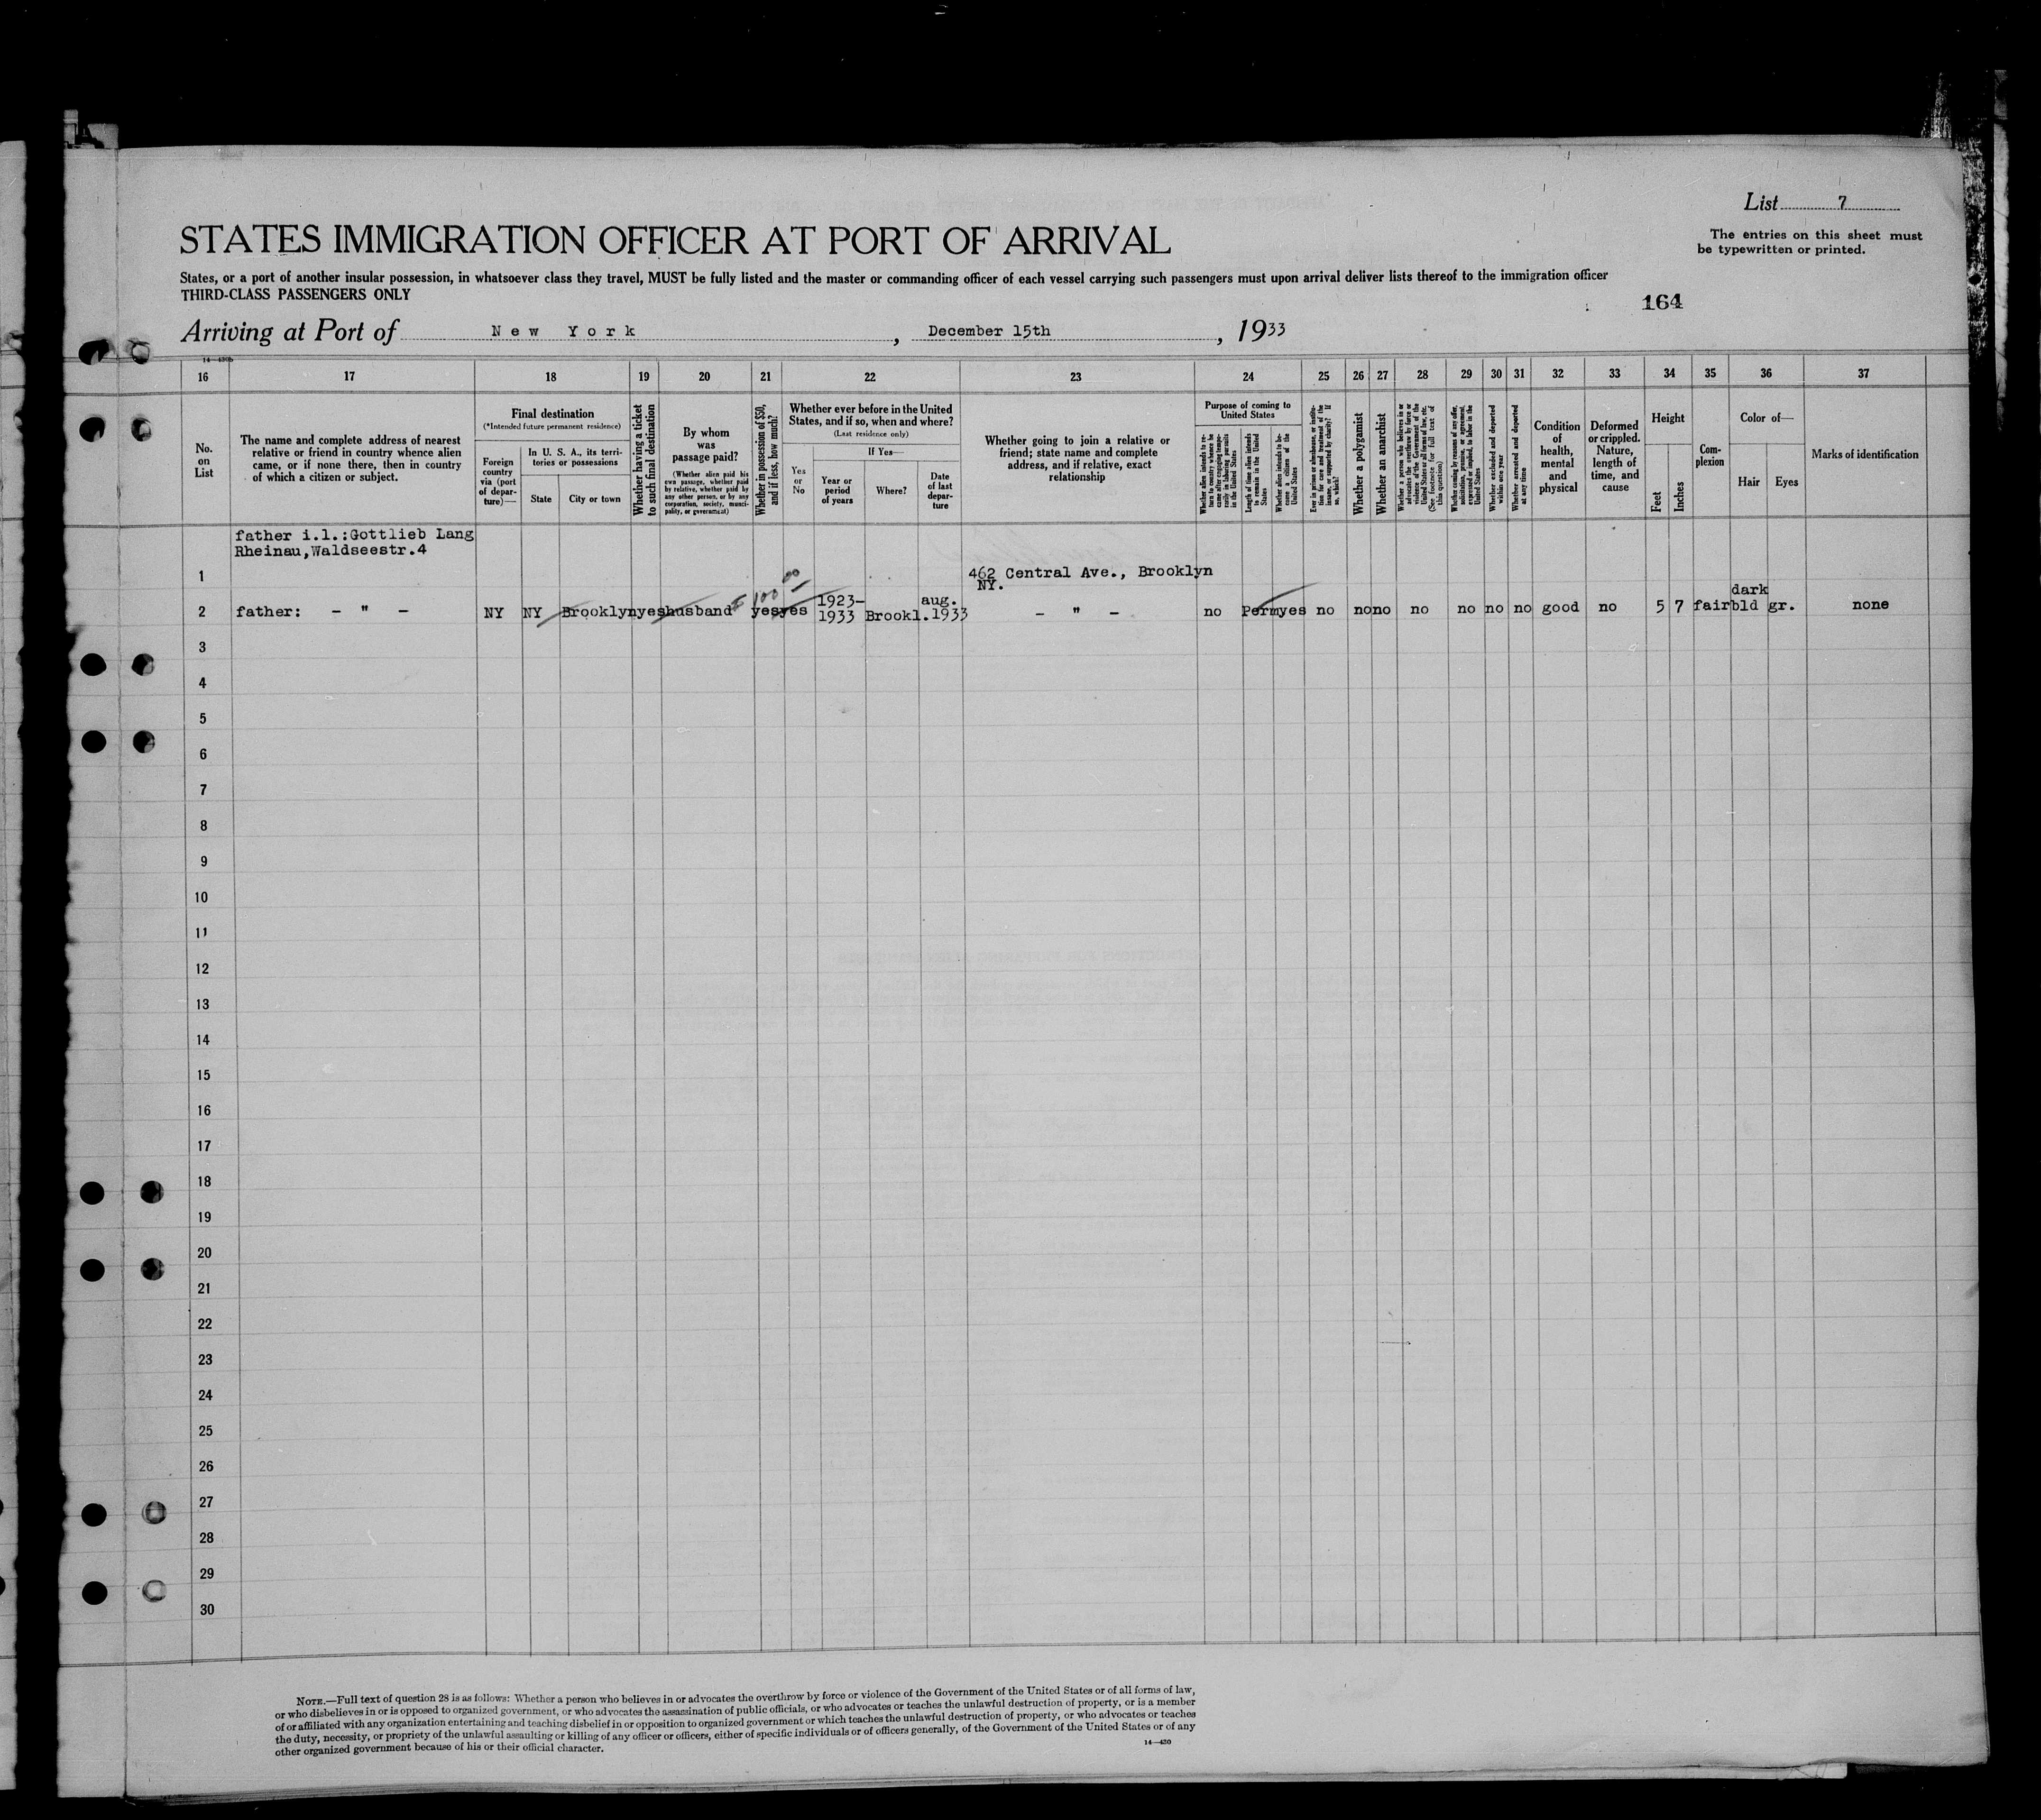 List 7
The entries on this sheet must
be typewritten or printed.
STATES IMMIGRATION OFFICER AT PORT OF ARRIVAL
States, or a port of another insular possession, in whatsoever class they travel, MUST be fully listed and the master or commanding officer of each vessel carrying such passengers must upon arrival deliver lists thereof to the immigration officer
THIRD-CLASS PASSENGERS ONLY
164
Arriving at Port of New York, December 15th, 1933
14—430b
16 17 18 19 20 21 22 23 24 25 26 27 28 29 30 31 32 33 34 35 36 37
No.
on
List
The name and complete address of nearest
relative or friend in country whence alien
came, or if none there, then in country
of which a citizen or subject.
Final destination
(*Intended future permanent residence)
Foreign
country
via (port
of depar-
ture)—
In U. S. A., its terri-
tories or possessions
State
City or town
Whether having a ticket
to such final destination
By whom
was
passage paid?
(Whether alien paid his
own passage, whether paid
by relative, whether paid by
any other person, or by any
corporation, society, munici-
pality, or government)
Whether in possession of $50,
and if less, how much?
Whether ever before in the United
States, and if so, when and where?
(Last residence only)
Yes
or
No
If Yes—
Year or
period
of years
Where?
Date
of last
depar-
ture
Whether going to join a relative or
friend; state name and complete
address, and if relative, exact
relationship
Purpose of coming to
United States
Whether alien intends to re-
turn to country whence he
came after engaging tempo-
rarily in laboring pursuits
in the United States
Length of time alien intends
to remain in the United
States
Whether alien intends to be-
come a citizen of the
United States
Ever in prison or almshouse, or institu-
tion for care and treatment of the
insane, or supported by charity? If
so, which?
Whether a polygamist
Whether an anarchist
Whether a person who believes in or
advocates the overthrow by force or
violence of the Government of the
United States or all forms of law, etc.
(See footnote for full text of
this question)
Whether coming by reasons of any offer,
solicitation, promise, or agreement,
expressed or implied, to labor in the
United States
Whether excluded and deported
within one year
Whether arrested and deported
at any time
Condition
of
health,
mental
and
physical
Deformed
or crippled.
Nature,
length of
time, and
cause
Height
Feet
Inches
Com-
plexion
Color of—
Hair
Eyes
Marks of identification
father i.l.:Gottlieb Lang
Rheinau,Waldseestr.4
1 462 Central Ave., Brooklyn
NY.
100
2 father: - " - NY NY Brooklyn yes husband yes yes 1923-1933 Brookl. aug. 1933 - " - no Perm yes no no no no no no no good no 5 7 fair dark bld gr. none
3
4
5
6
7
8
9
10
11
12
13
14
15
16
17
18
19
20
21
22
23
24
25
26
27
28
29
30
NOTE.—Full text of question 28 is as follows: Whether a person who believes in or advocates the overthrow by force or violence of the Government of the United States or of all forms of law,
or who disbelieves in or is opposed to organized government, or who advocates the assassination of public officials, or who advocates or teaches the unlawful destruction of property, or is a member
of or affiliated with any organization entertaining and teaching disbelief in or opposition to organized government or which teaches the unlawful destruction of property, or who advocates or teaches
the duty, necessity, or propriety of the unlawful assaulting or killing of any officer or officers, either of specific individuals or of officers generally, of the Government of the United States or of any
other organized government because of his or their official character.
14—430